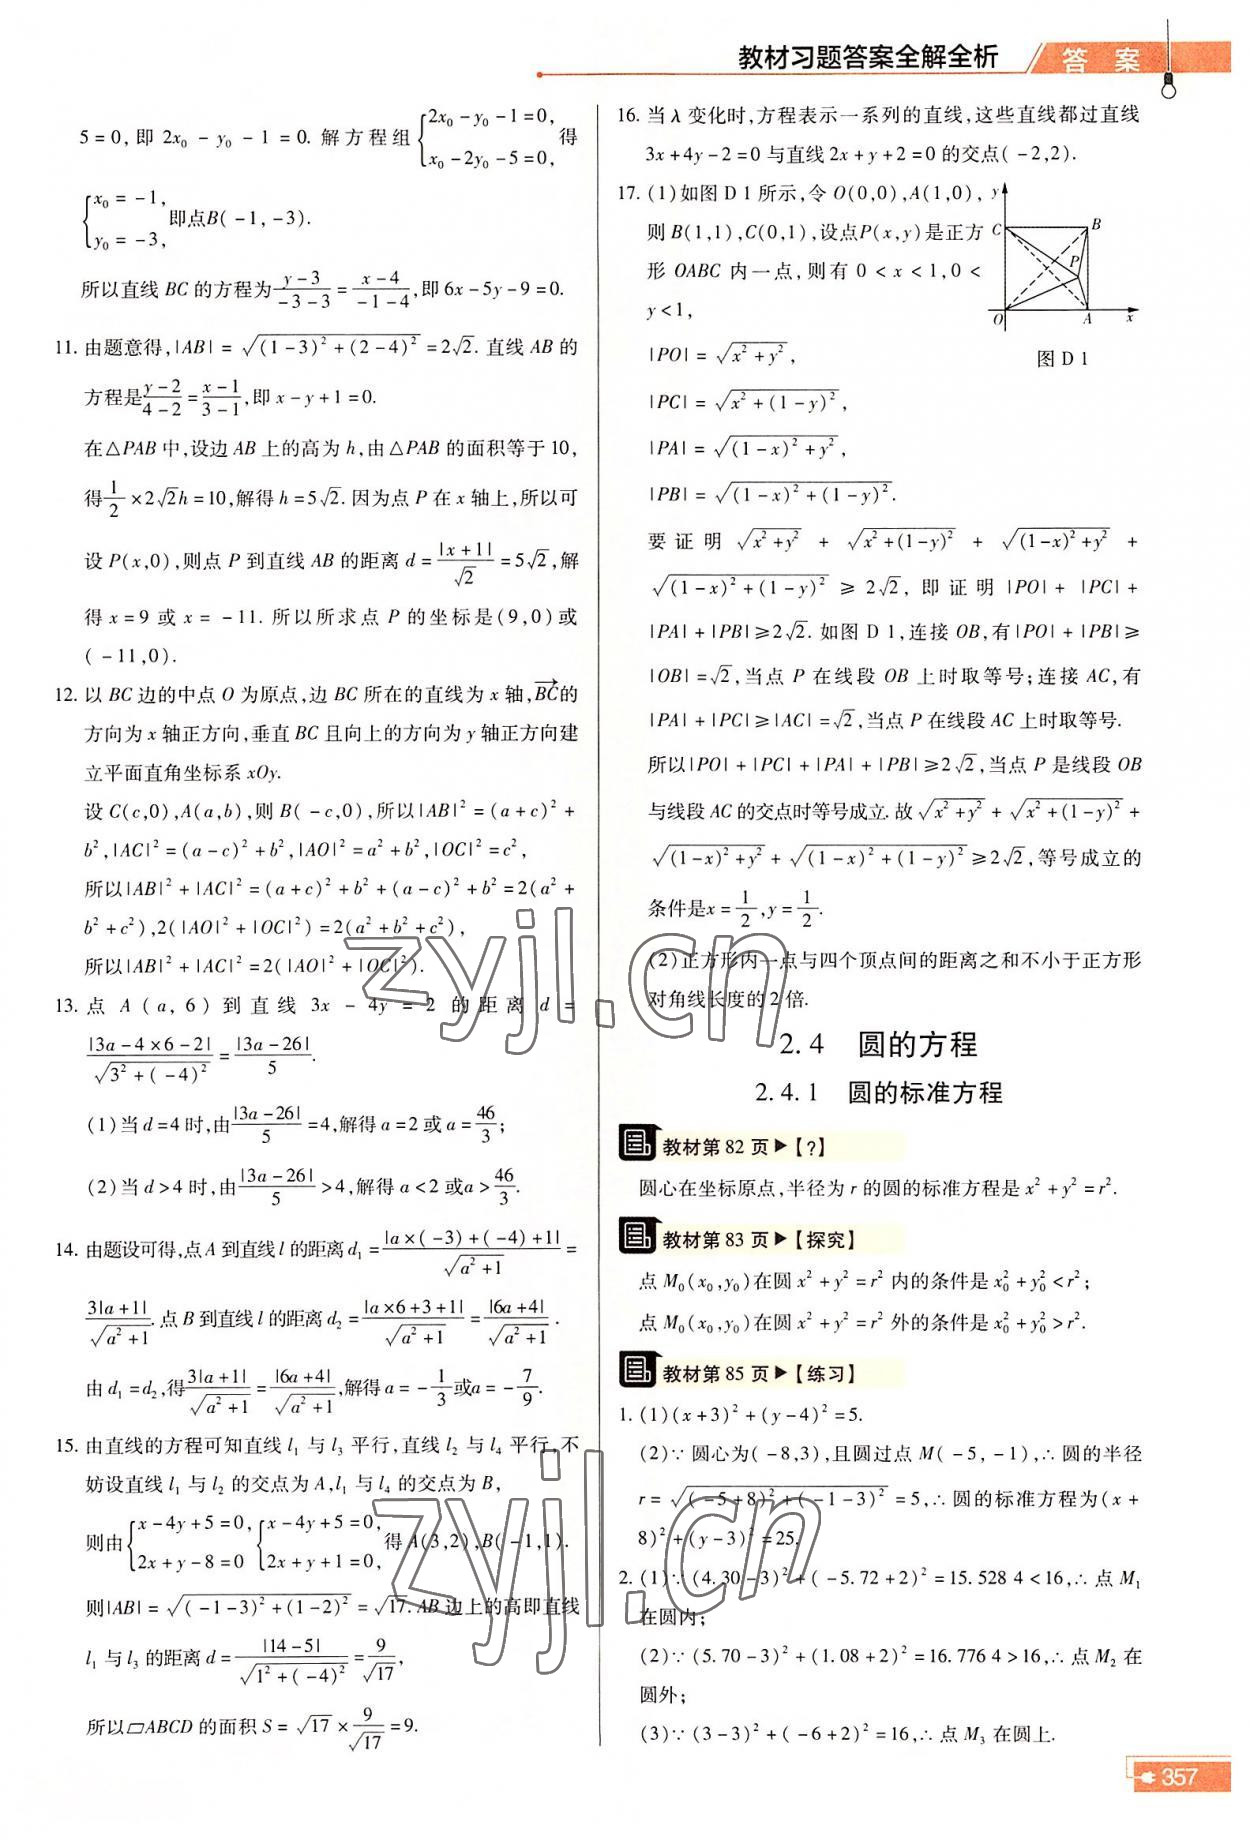 教材习题答案全解全析 答案
5=0,即 2x₀-y₀-1=0. 解方程组{2x₀-y₀-1=0, x₀-2y₀-5=0,得
{x₀=-1, y₀=-3,即点B(-1,-3).
所以直线 BC 的方程为(y-3)/(-3-3)=(x-4)/(-1-4),即 6x-5y-9=0.
11. 由题意得,|AB|=√((1-3)²+(2-4)²)=2√2. 直线 AB 的
方程是(y-2)/(4-2)=(x-1)/(3-1),即 x-y+1=0.
在△PAB 中,设边 AB 上的高为 h,由△PAB 的面积等于 10,
得1/2×2√2h=10,解得 h=5√2. 因为点 P 在 x 轴上,所以可
设 P(x,0),则点 P 到直线 AB 的距离 d=|x+1|/√2=5√2,解
得 x=9 或 x=-11. 所以所求点 P 的坐标是(9,0)或
(-11,0).
12. 以 BC 边的中点 O 为原点,边 BC 所在的直线为 x 轴,BC→的
方向为 x 轴正方向,垂直 BC 且向上的方向为 y 轴正方向建
立平面直角坐标系 xOy.
设 C(c,0),A(a,b),则 B(-c,0),所以|AB|²=(a+c)²+
b²,|AC|²=(a-c)²+b²,|AO|²=a²+b²,|OC|²=c²,
所以|AB|²+|AC|²=(a+c)²+b²+(a-c)²+b²=2(a²+
b²+c²),2(|AO|²+|OC|²)=2(a²+b²+c²),
所以|AB|²+|AC|²=2(|AO|²+|OC|²).
13. 点 A(a,6)到直线 3x-4y=2 的距离 d=
|3a-4×6-2|/√(3²+(-4)²)=|3a-26|/5.
(1)当 d=4 时,由|3a-26|/5=4,解得 a=2 或 a=46/3;
(2)当 d>4 时,由|3a-26|/5>4,解得 a<2 或a>46/3.
14. 由题设可得,点 A 到直线 l 的距离 d₁=|a×(-3)+(-4)+1|/√(a²+1)=
3|a+1|/√(a²+1).点 B 到直线 l 的距离 d₂=|a×6+3+1|/√(a²+1)=|6a+4|/√(a²+1).
由 d₁=d₂,得3|a+1|/√(a²+1)=|6a+4|/√(a²+1),解得 a=-1/3或a=-7/9.
15. 由直线的方程可知直线 l₁ 与 l₃ 平行,直线 l₂ 与 l₄ 平行,不
妨设直线 l₁ 与 l₂ 的交点为 A,l₁ 与 l₄ 的交点为 B,
则由{x-4y+5=0, 2x+y-8=0 {x-4y+5=0, 2x+y+1=0,得 A(3,2),B(-1,1).
则|AB|=√((-1-3)²+(1-2)²)=√17. AB 边上的高即直线
l₁ 与 l₃ 的距离 d=|14-5|/√(1²+(-4)²)=9/√17,
所以▱ABCD 的面积 S=√17×9/√17=9.
16. 当 λ 变化时,方程表示一系列的直线,这些直线都过直线
3x+4y-2=0 与直线 2x+y+2=0 的交点(-2,2).
17. (1)如图 D 1 所示,令 O(0,0),A(1,0),
则 B(1,1),C(0,1),设点P(x,y)是正方
形 OABC 内一点,则有 0<x<1,0<
y<1,
y
C
B
P
O
A
x
图 D 1
|PO|=√(x²+y²),
|PC|=√(x²+(1-y)²),
|PA|=√((1-x)²+y²),
|PB|=√((1-x)²+(1-y)²).
要证明√(x²+y²)+√(x²+(1-y)²)+√((1-x)²+y²)+
√((1-x)²+(1-y)²)≥2√2,即证明|PO|+|PC|+
|PA|+|PB|≥2√2. 如图 D 1,连接 OB,有|PO|+|PB|≥
|OB|=√2,当点 P 在线段 OB 上时取等号;连接 AC,有
|PA|+|PC|≥|AC|=√2,当点 P 在线段 AC 上时取等号.
所以|PO|+|PC|+|PA|+|PB|≥2√2,当点 P 是线段 OB
与线段 AC 的交点时等号成立. 故√(x²+y²)+√(x²+(1-y)²)+
√((1-x)²+y²)+√((1-x)²+(1-y)²)≥2√2,等号成立的
条件是x=1/2,y=1/2.
(2)正方形内一点与四个顶点间的距离之和不小于正方形
对角线长度的 2 倍.
2.4 圆的方程
2.4.1 圆的标准方程
教材第 82 页▶【?】
圆心在坐标原点,半径为 r 的圆的标准方程是 x²+y²=r².
教材第 83 页▶【探究】
点 M₀(x₀,y₀)在圆 x²+y²=r² 内的条件是 x₀²+y₀²<r²;
点 M₀(x₀,y₀)在圆 x²+y²=r² 外的条件是 x₀²+y₀²>r².
教材第 85 页▶【练习】
1. (1)(x+3)²+(y-4)²=5.
(2)∵圆心为(-8,3),且圆过点 M(-5,-1),∴圆的半径
r=√((-5+8)²+(-1-3)²)=5,∴圆的标准方程为(x+
8)²+(y-3)²=25.
2. (1)∵(4.30-3)²+(-5.72+2)²=15.528 4<16,∴点 M₁
在圆内;
(2)∵(5.70-3)²+(1.08+2)²=16.776 4>16,∴点 M₂ 在
圆外;
(3)∵(3-3)²+(-6+2)²=16,∴点 M₃ 在圆上.
357
zyjl.cn
zyjl.cn